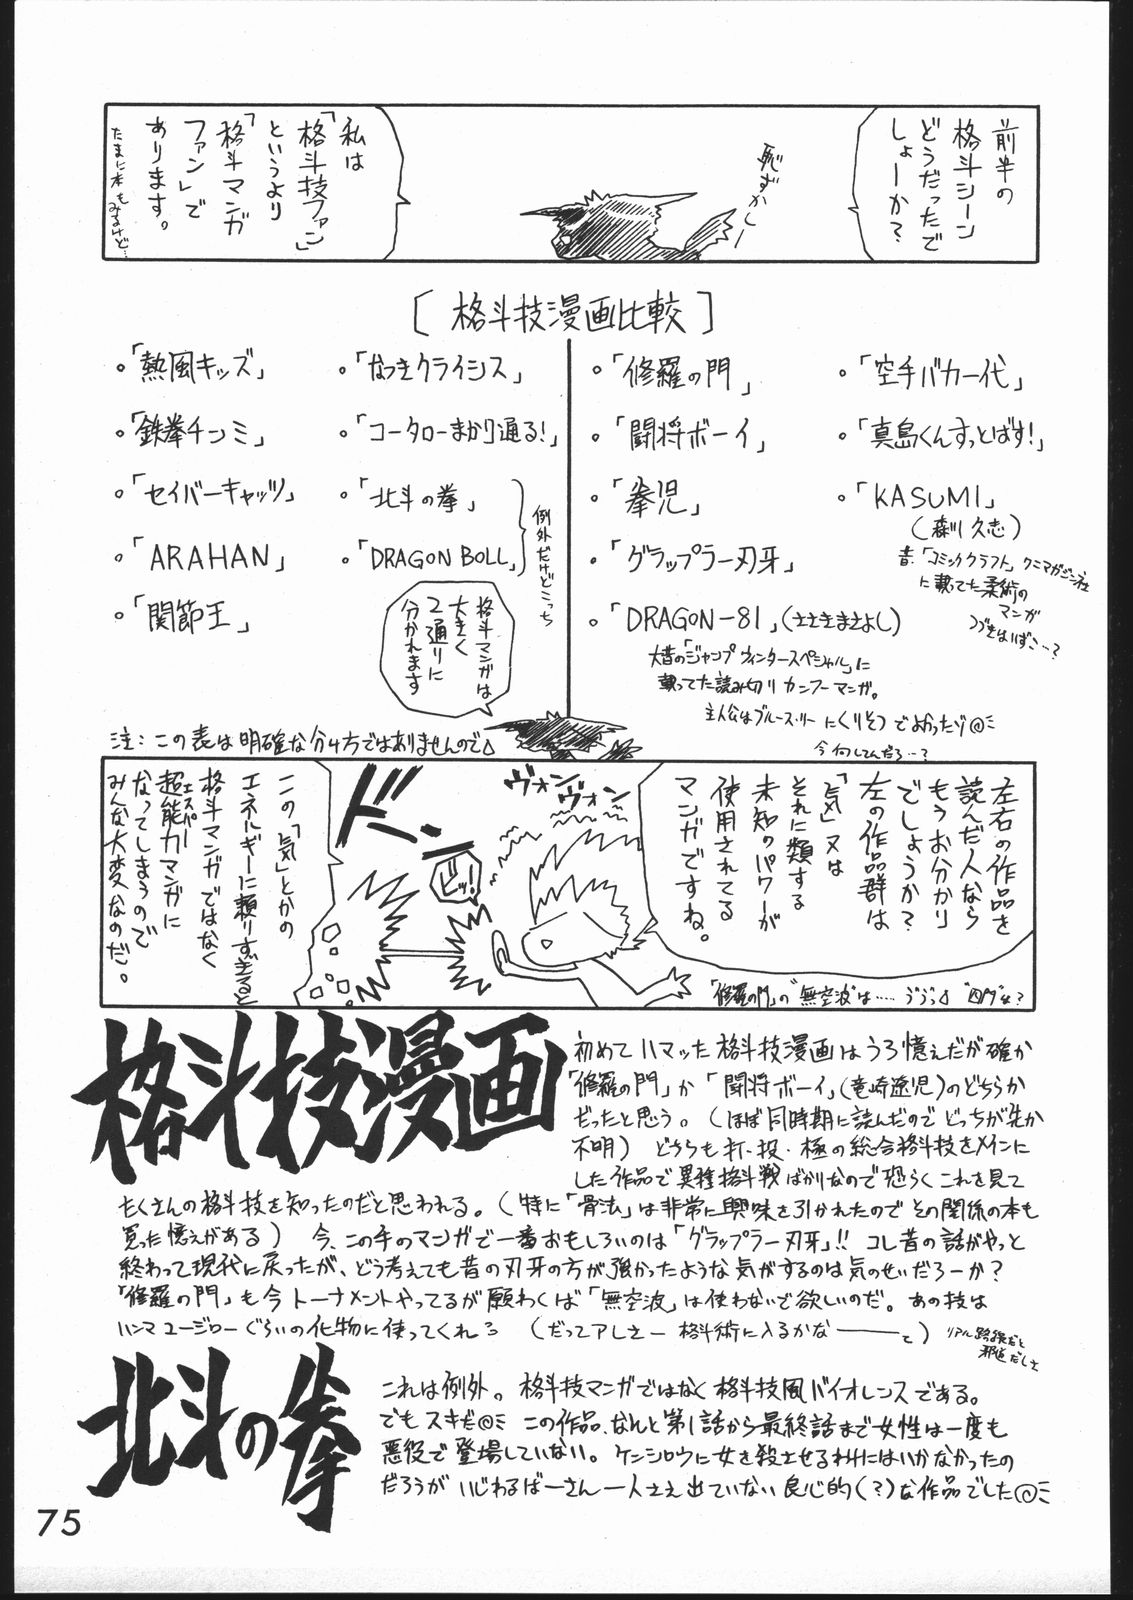 前半の
格斗シーン
どうだったで
しょーか?
恥ずかしー
私は
「格斗技ファン」
というより
「格斗マンガ
ファン」で
あります。
たまに本もみるけど…
[格斗技漫画比較]
・「修羅の門」
・「空手バカ一代」
・「闘将ボーイ」
・「真島くんすっとばす!」
・「拳児」
・「KASUMI」
(森川久志)
昔「コミッククラフト」クニマガジン社
に載ってた柔術の
マンガ
つづきはいずこ…?
・「グラップラー刃牙」
・「DRAGON-81」(ささきまさよし)
大昔の「ジャンプウィンタースペシャル」に
載ってた読み切りカンフーマンガ。
主人公はブルース・リーにくりそつでよかったゾ@ミ
今何してんだろ…?
・「熱風キッズ」
・「なつきクライシス」
・「鉄拳チンミ」
・「コータローまかり通る!」
・「セイバーキャッツ」
・「北斗の拳」
・「ARAHAN」
・「DRAGON BOLL」
例外だけどこっち
・「関節王」
格斗マンガは
大きく
2通りに
分かれます
注:この表は明確な分け方ではありませんので
左右の作品を
読んだ人なら
もうお分かり
でしょうか?
左の作品群は
「気」又は
それに類する
未知のパワーが
使用されてる
マンガですね。
「修羅の門」の"無空波"は……
ヴォン
ヴォン
ビッ!
ドン
この「気」とかの
エネルギーに頼りすぎると
格斗マンガではなく
超能力マンガに
エスパー
なってしまうので
みんな大変なのだ。
格斗技漫画
初めてハマッた格斗技漫画はうろ憶えだが確か
「修羅の門」か「闘将ボーイ」(竜崎遼児)のどちらか
だったと思う。(ほぼ同時期に読んだのでどっちが先か
不明)どちらも打・投・極の総合格斗技をメインに
した作品で異種格斗戦ばかりなので恐らくこれを見て
たくさんの格斗技を知ったのだと思われる。(特に「骨法」は非常に興味を引かれたのでその関係の本も
買った憶えがある)今、この手のマンガで一番おもしろいのは「グラップラー刃牙」!!コレ昔の話がやっと
終わって現代に戻ったが、どう考えても昔の刃牙の方が強かったような気がするのは気のせいだろーか?
「修羅の門」も今トーナメントやってるが願わくば「無空波」は使わないで欲しいのだ。あの技は
ハンマユージローぐらいの化物に使ってくれる(だってアレさー格斗術に入るかな――て)リアル路線だと
邪道だしさ
北斗の拳
これは例外。格斗技マンガではなく格斗技風バイオレンスである。
でもスキだ@ミ この作品、なんと第1話から最終話まで女性は一度も
悪役で登場していない。ケンシロウに女を殺させるわけにはいかなかったの
だろうがいじわるばーさん一人さえ出ていない良心的(?)な作品でした@ミ
75